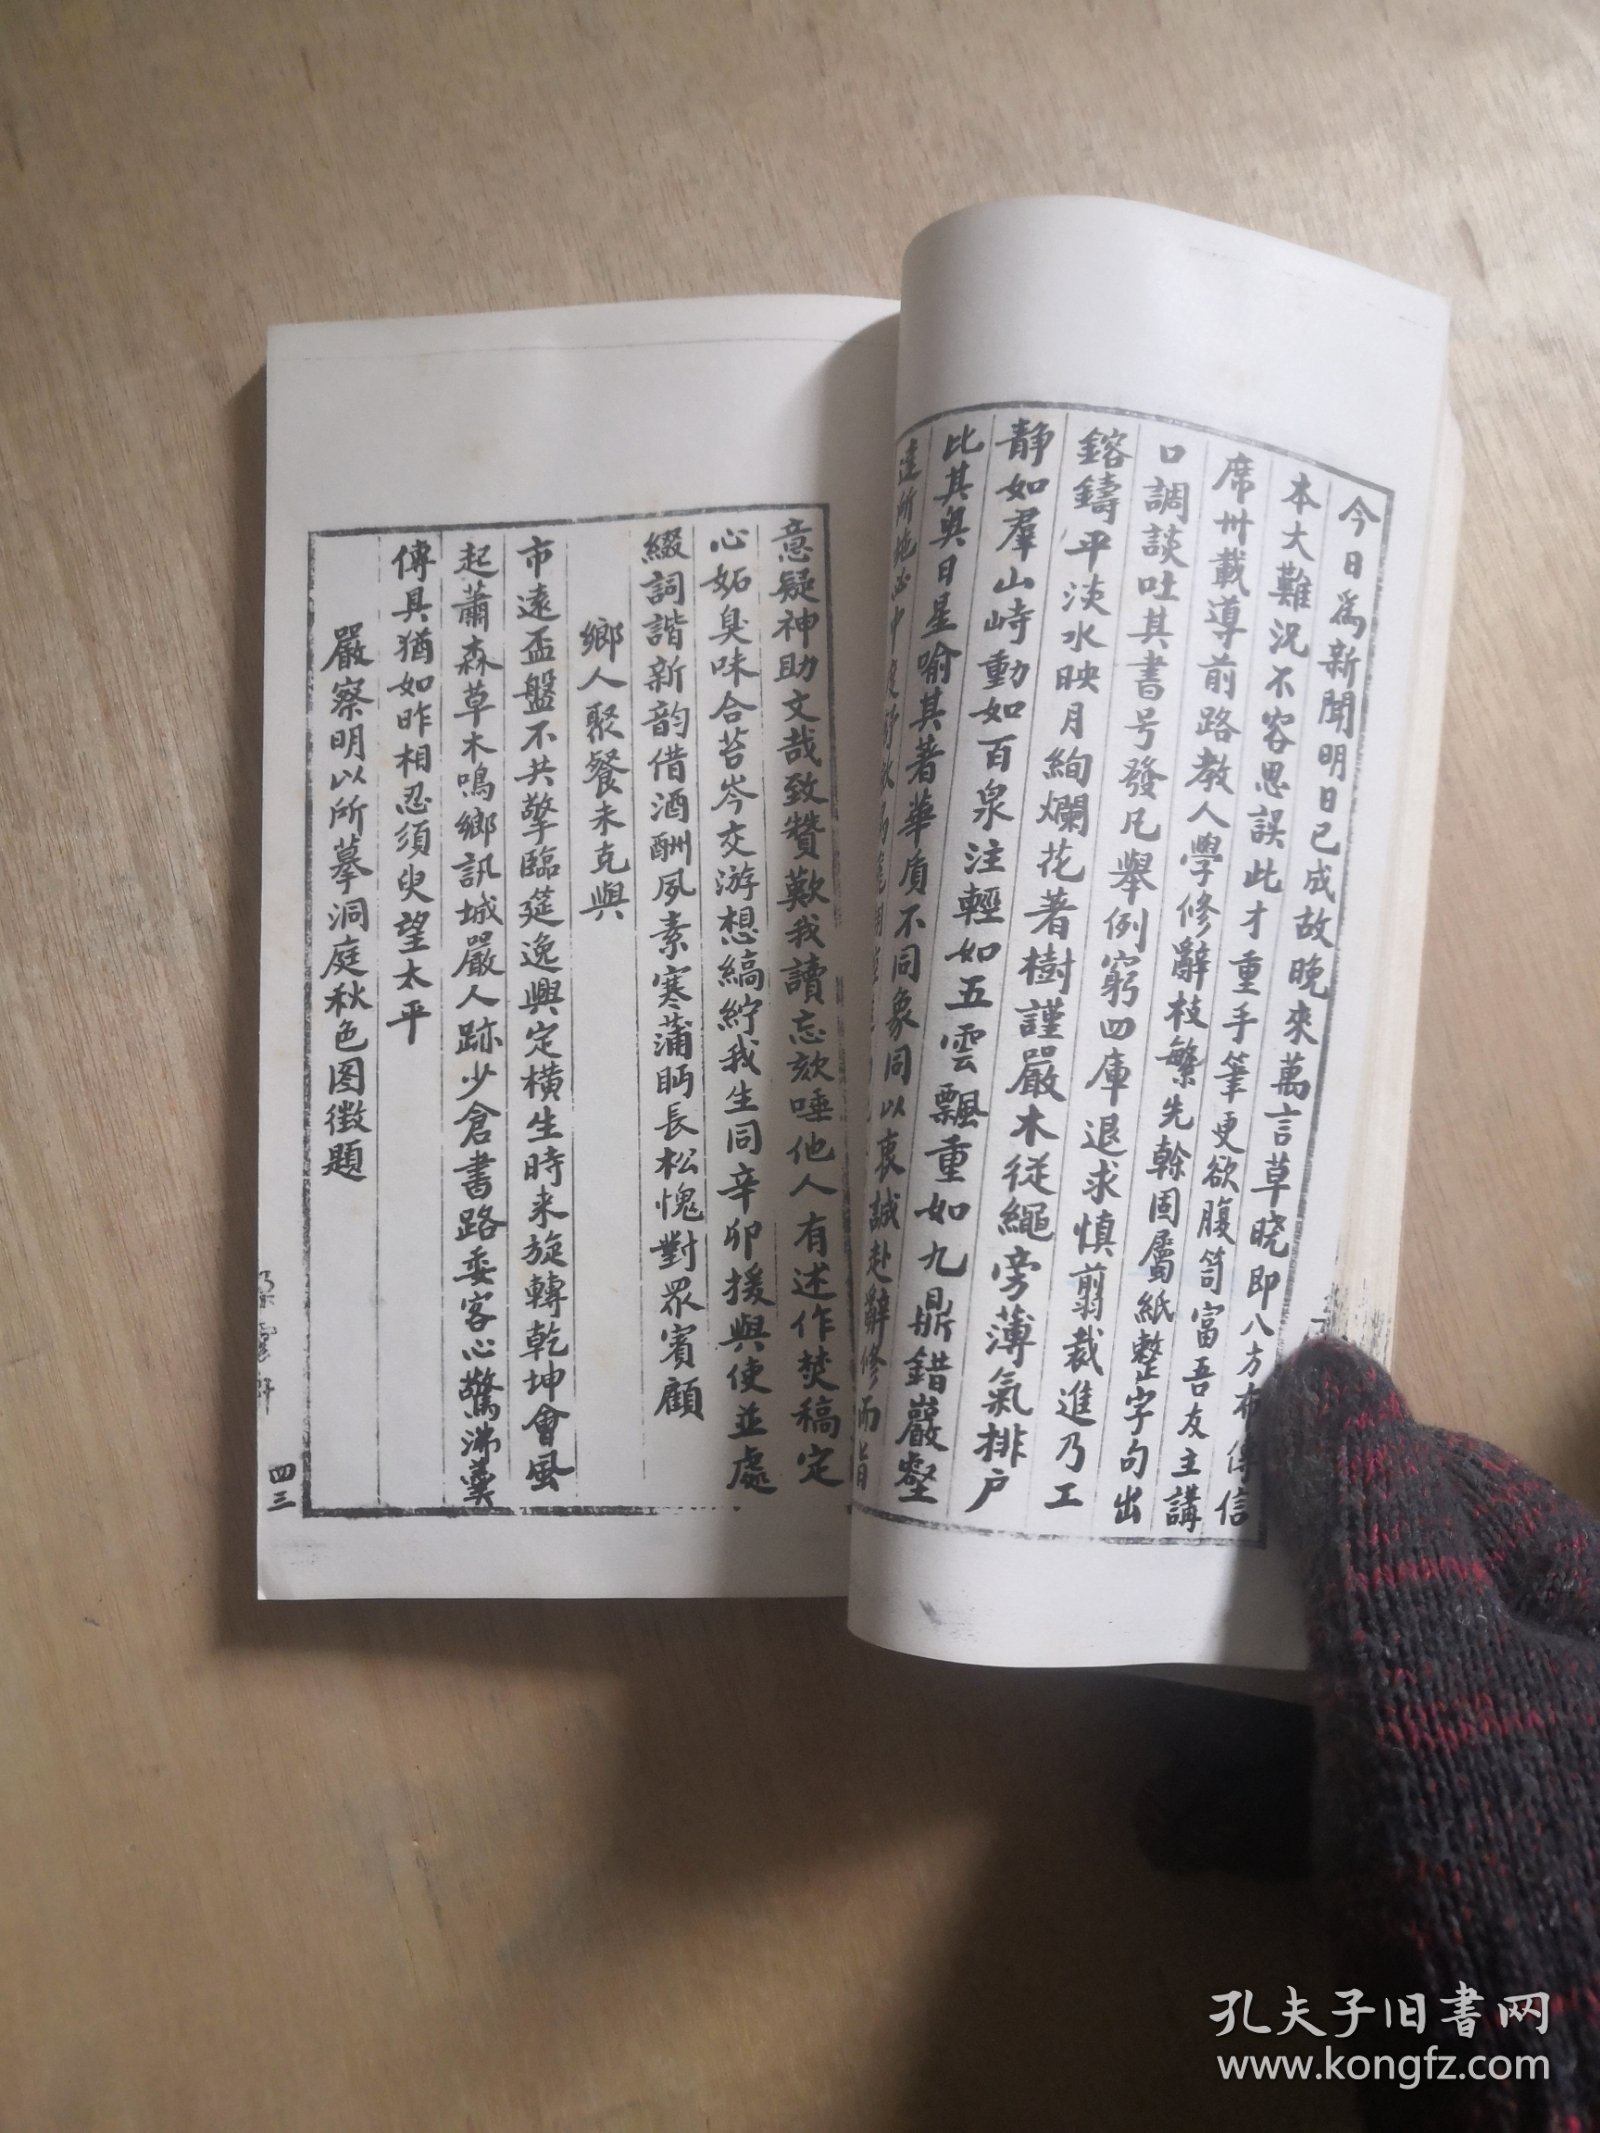 今日爲新聞明日已成故晚來萬言草晓即八方布傳信
本大難況不容思誤此才重手筆更欲腹笥富吾友主講
席卅載導前路教人學修辭枝繁先榦固屬紙整字句出
口調談吐其書号發凡舉例窮四庫退求慎翦裁進乃工
鎔鑄平淡水映月絢爛花著樹謹嚴木從繩旁薄氣排户
静如羣山峙動如百泉注輕如五雲飄重如九鼎錯巖壑
比其與日星喻其著華質不同象同以衷誠赴辭修而旨
達所
意疑神助文哉致贊歎我讀忘欬唾他人有述作焚稿定
心妬臭味合苔岑交游想縞紵我生同辛卯援與使並處
綴詞諧新韵借酒酬夙素寒蒲眄長松愧對眾賓顧
鄉人聚餐未克與
市遠盃盤不共擎臨筵逸興定橫生時來旋轉乾坤會風
起蕭森草木鳴鄉訊城嚴人跡少倉書路委客心驚沸羹
傳具猶如昨相忍須臾望太平
嚴察明以所摹洞庭秋色图徵題
四三
孔夫子旧书网
www.kongfz.com